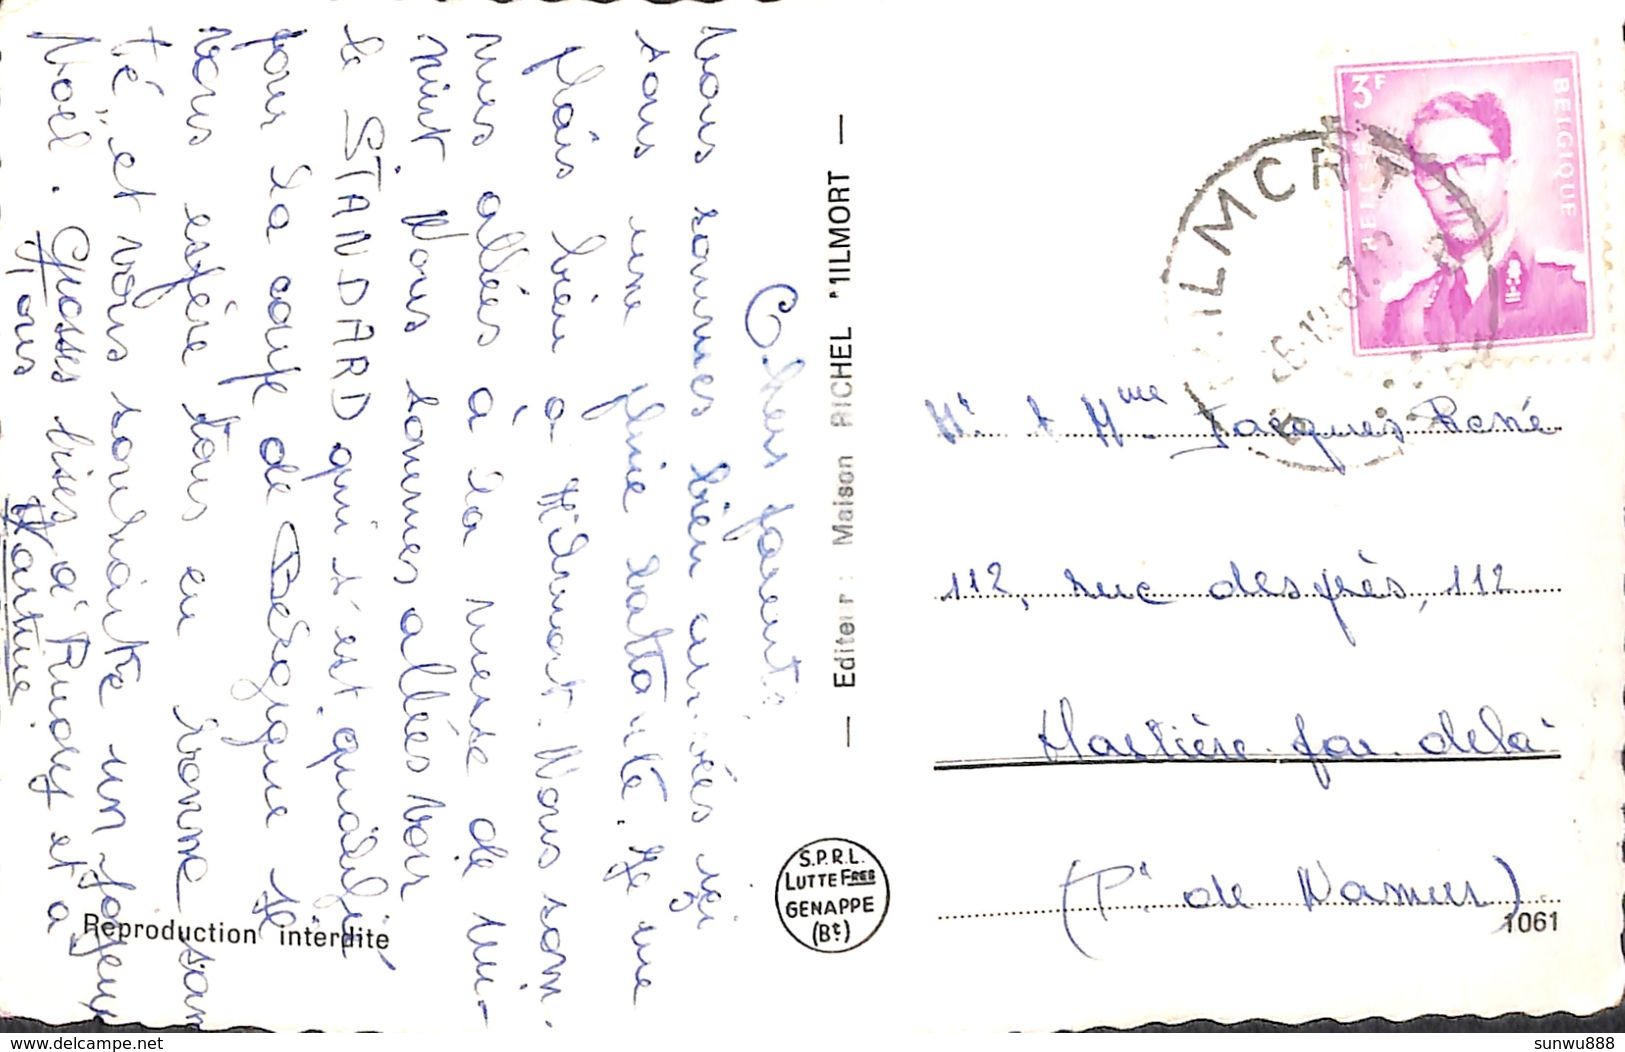 Chers parents
Nous sommes bien arrivés ici
sous une pluie battante. Je me
plais bien à Hilmort. Nous som-
mes allées à la messe de mi-
nuit. Nous sommes allées voir
le STANDARD qui s'est qualifié
pour la coupe de Belgique. Je
vous espère tous en bonne san
té, et vous souhaite un joyeux
Noël. Grosses bises d'Rudy et à
tous
Martine.
Reproduction interdite
— Editeur : Maison RICHEL "IILMORT —
S.P.R.L.
LUTTE FRES
GENAPPE
(Bt)
3F
BELGIQUE
BELGIE
ILMORT
Mr & Mme Jacques René
112, rue des prés, 112
Hastière par delà
(Pr de Namur)
1061
delcampe.net
sunwu888